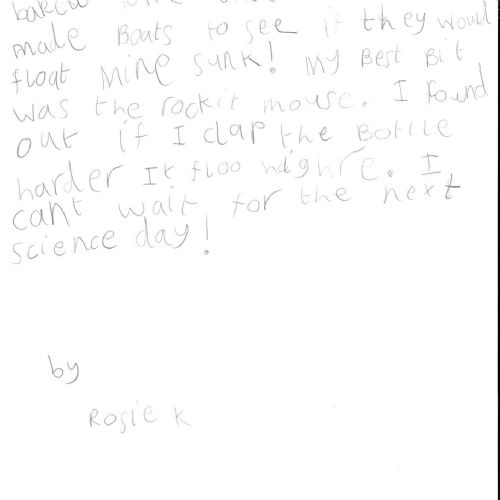 made Boats to see if they would
float Mine sunk! My Best Bit
was the rockit mouse. I found
out if I clap the Bottle
harder It floo highre. I
cant wait for the next
science day!
by
Rosie K